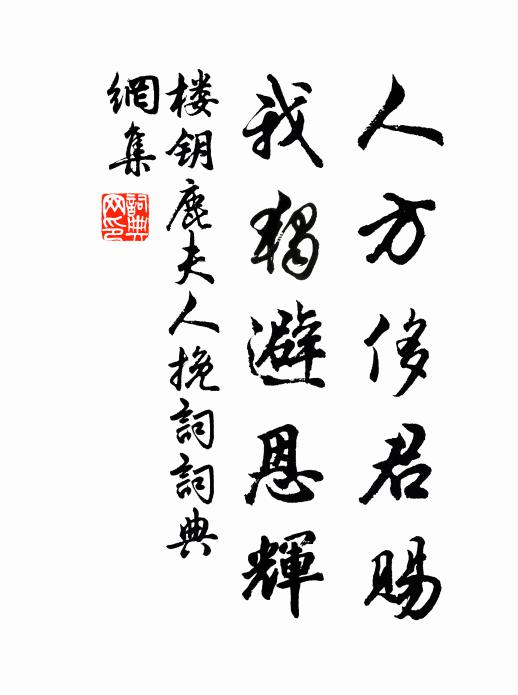 人方侈君賜
我獨避恩輝
楼钥鹿夫人挽詞詞典
網集
詞典
网印